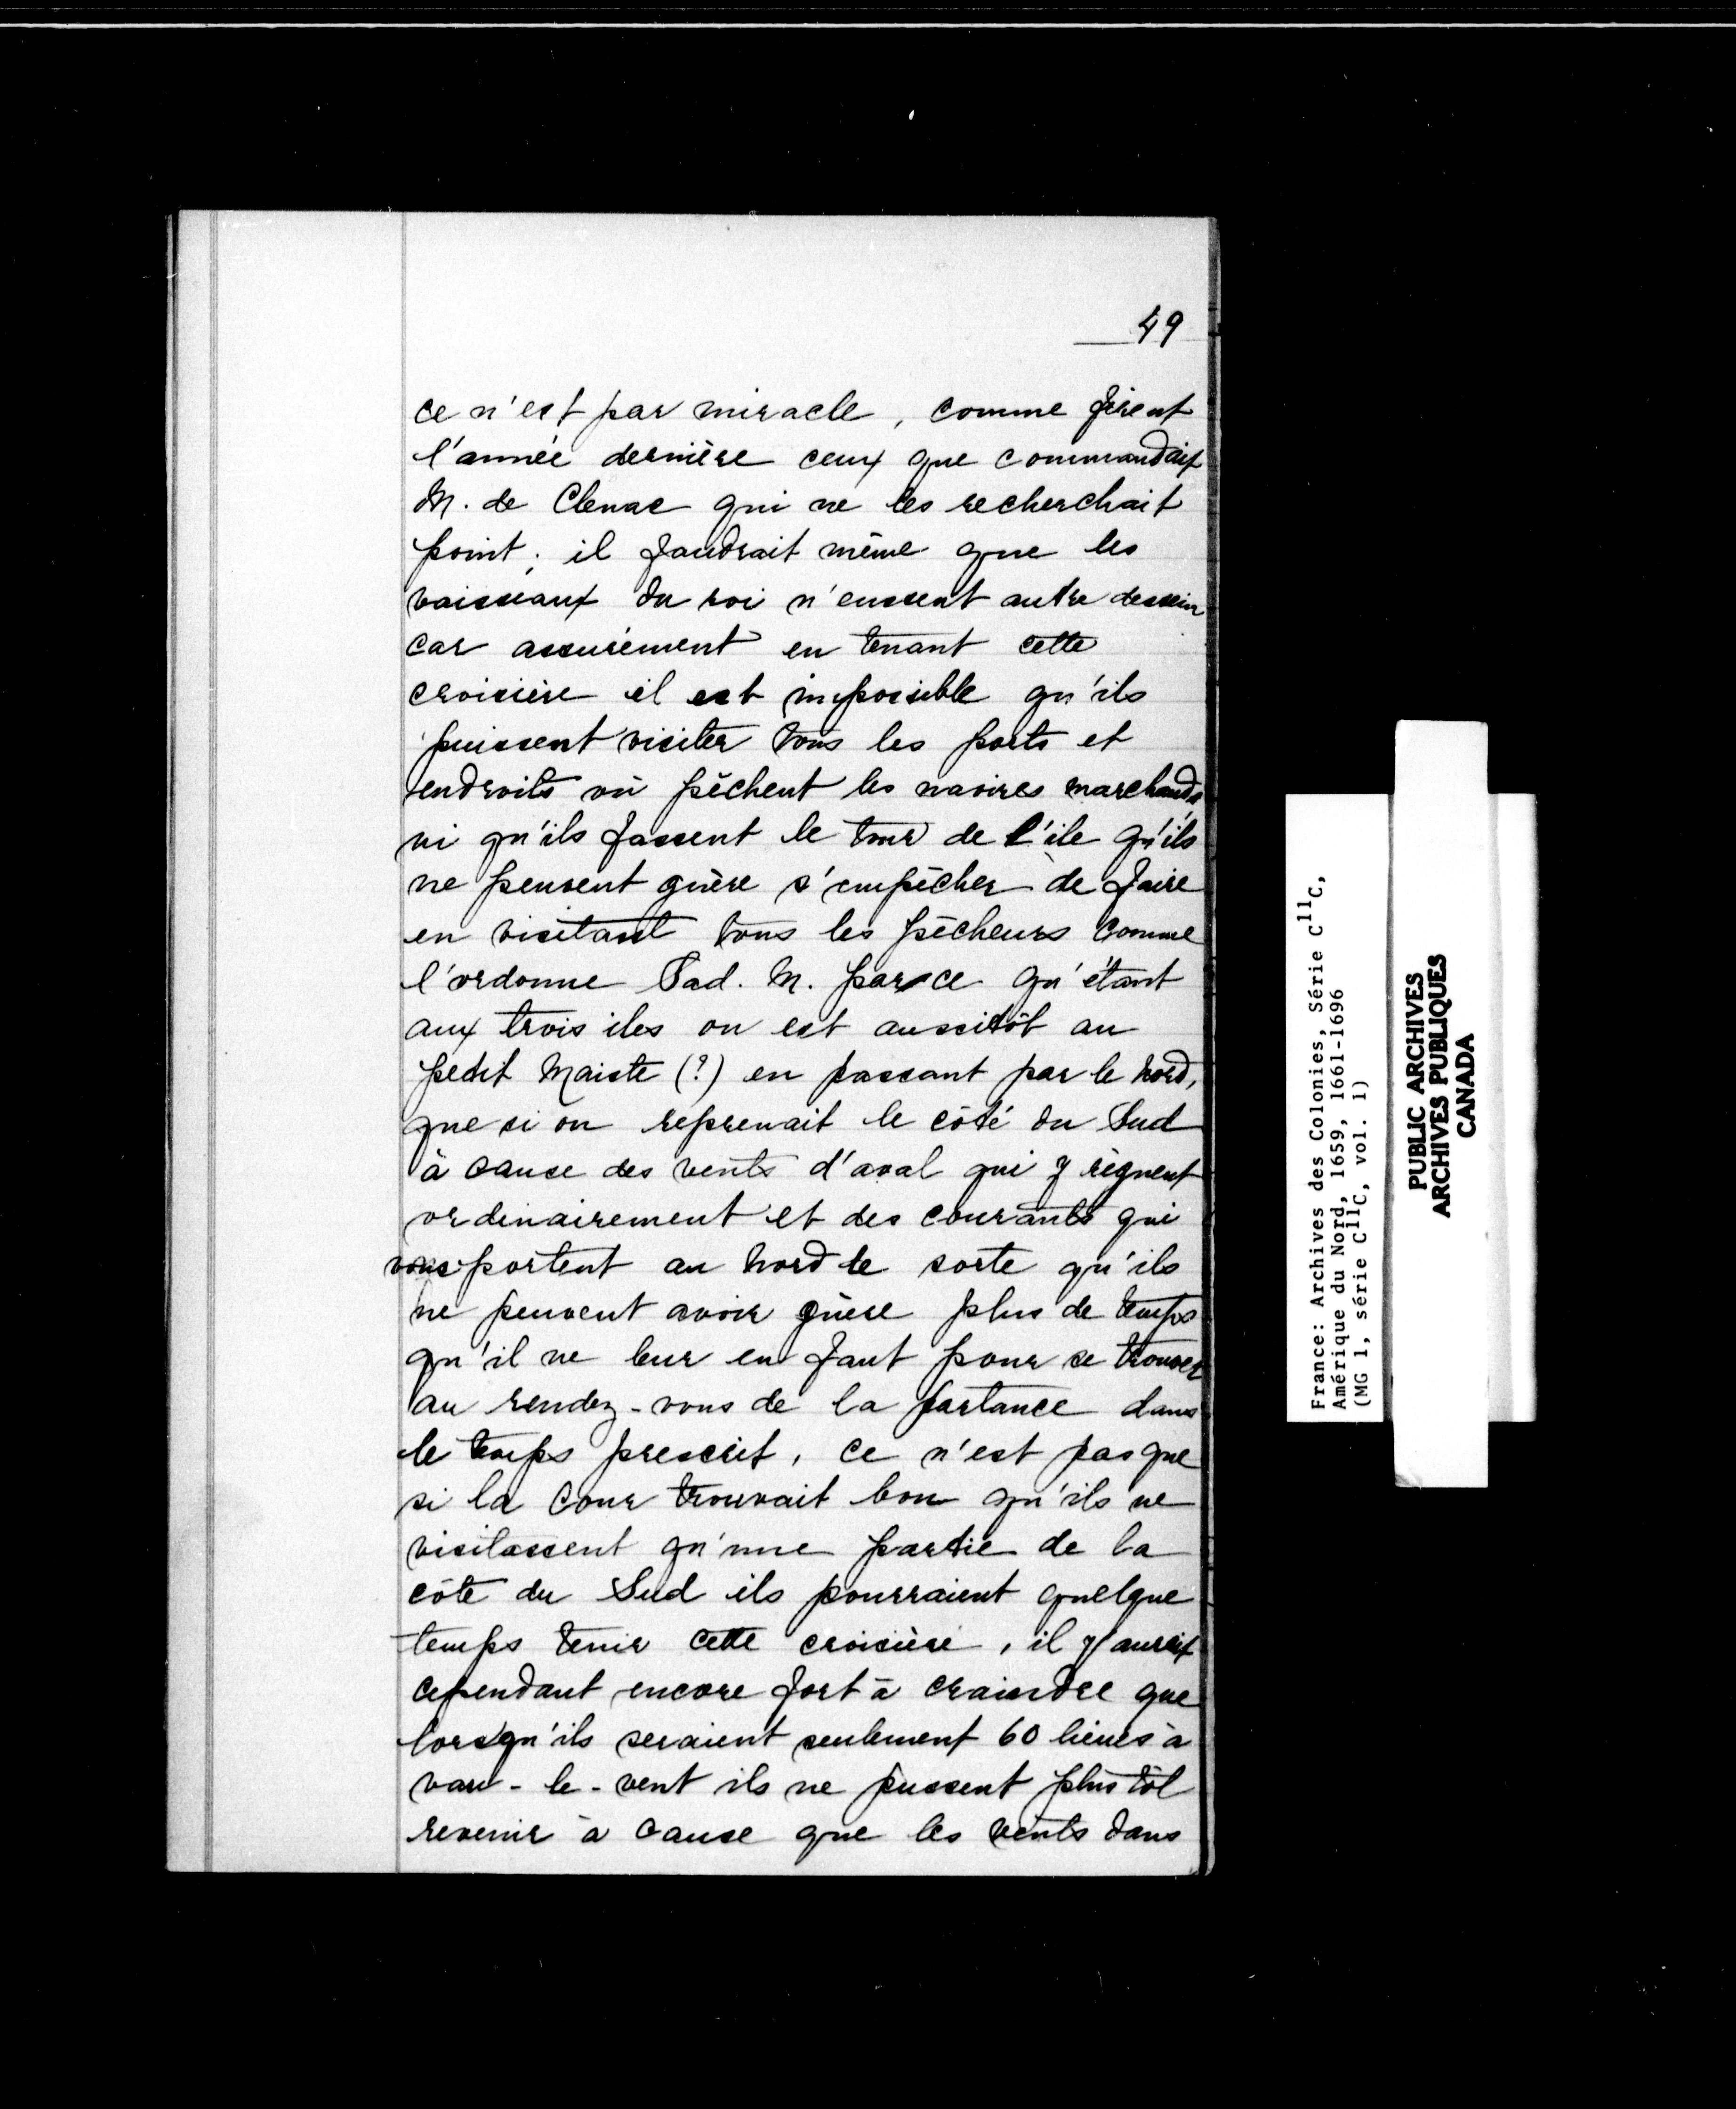 49
ce n'est par miracle, comme firent
l'année dernière ceux que commandait
M. de Clenac qui ne les recherchait
point; il faudrait même que les
vaisseaux du roi n'eussent autre dessein
car assurément en tenant cette
croisière il est impossible qu'ils
puissent visiter tous les ports et
endroits où pêchent les navires marchands
ni qu'ils fassent le tour de l'ile qu'ils
ne peuvent guère s'empêcher de faire
en visitant tous les pêcheurs comme
l'ordonne Sad. M. parce qu'étant
aux trois iles on est aussitôt au
petit Maiste (?) en passant par le nord,
que si on reprenait le côté du Sud
à cause des vents d'aval qui y règnent
ordinairement et des courants qui
vous portent au nord de sorte qu'ils
ne peuvent avoir guère plus de temps
qu'il ne leur en faut pour se trouver
au rendez-vous de la partance dans
le temps prescrit, ce n'est pas que
si la Cour trouvait bon qu'ils ne
visitassent qu'une partie de la
côte du Sud ils pourraient quelque
temps tenir cette croisière, il y aurait
cependant encore fort à craindre que
lorsqu'ils seraient seulement 60 lieues à
vau-le-vent ils ne pussent plus tôt
revenir à cause que les vents dans
France: Archives des Colonies, Série C11C,
Amérique du Nord, 1659, 1661-1696
(MG 1, série C11C, vol. 1)
PUBLIC ARCHIVES
ARCHIVES PUBLIQUES
CANADA